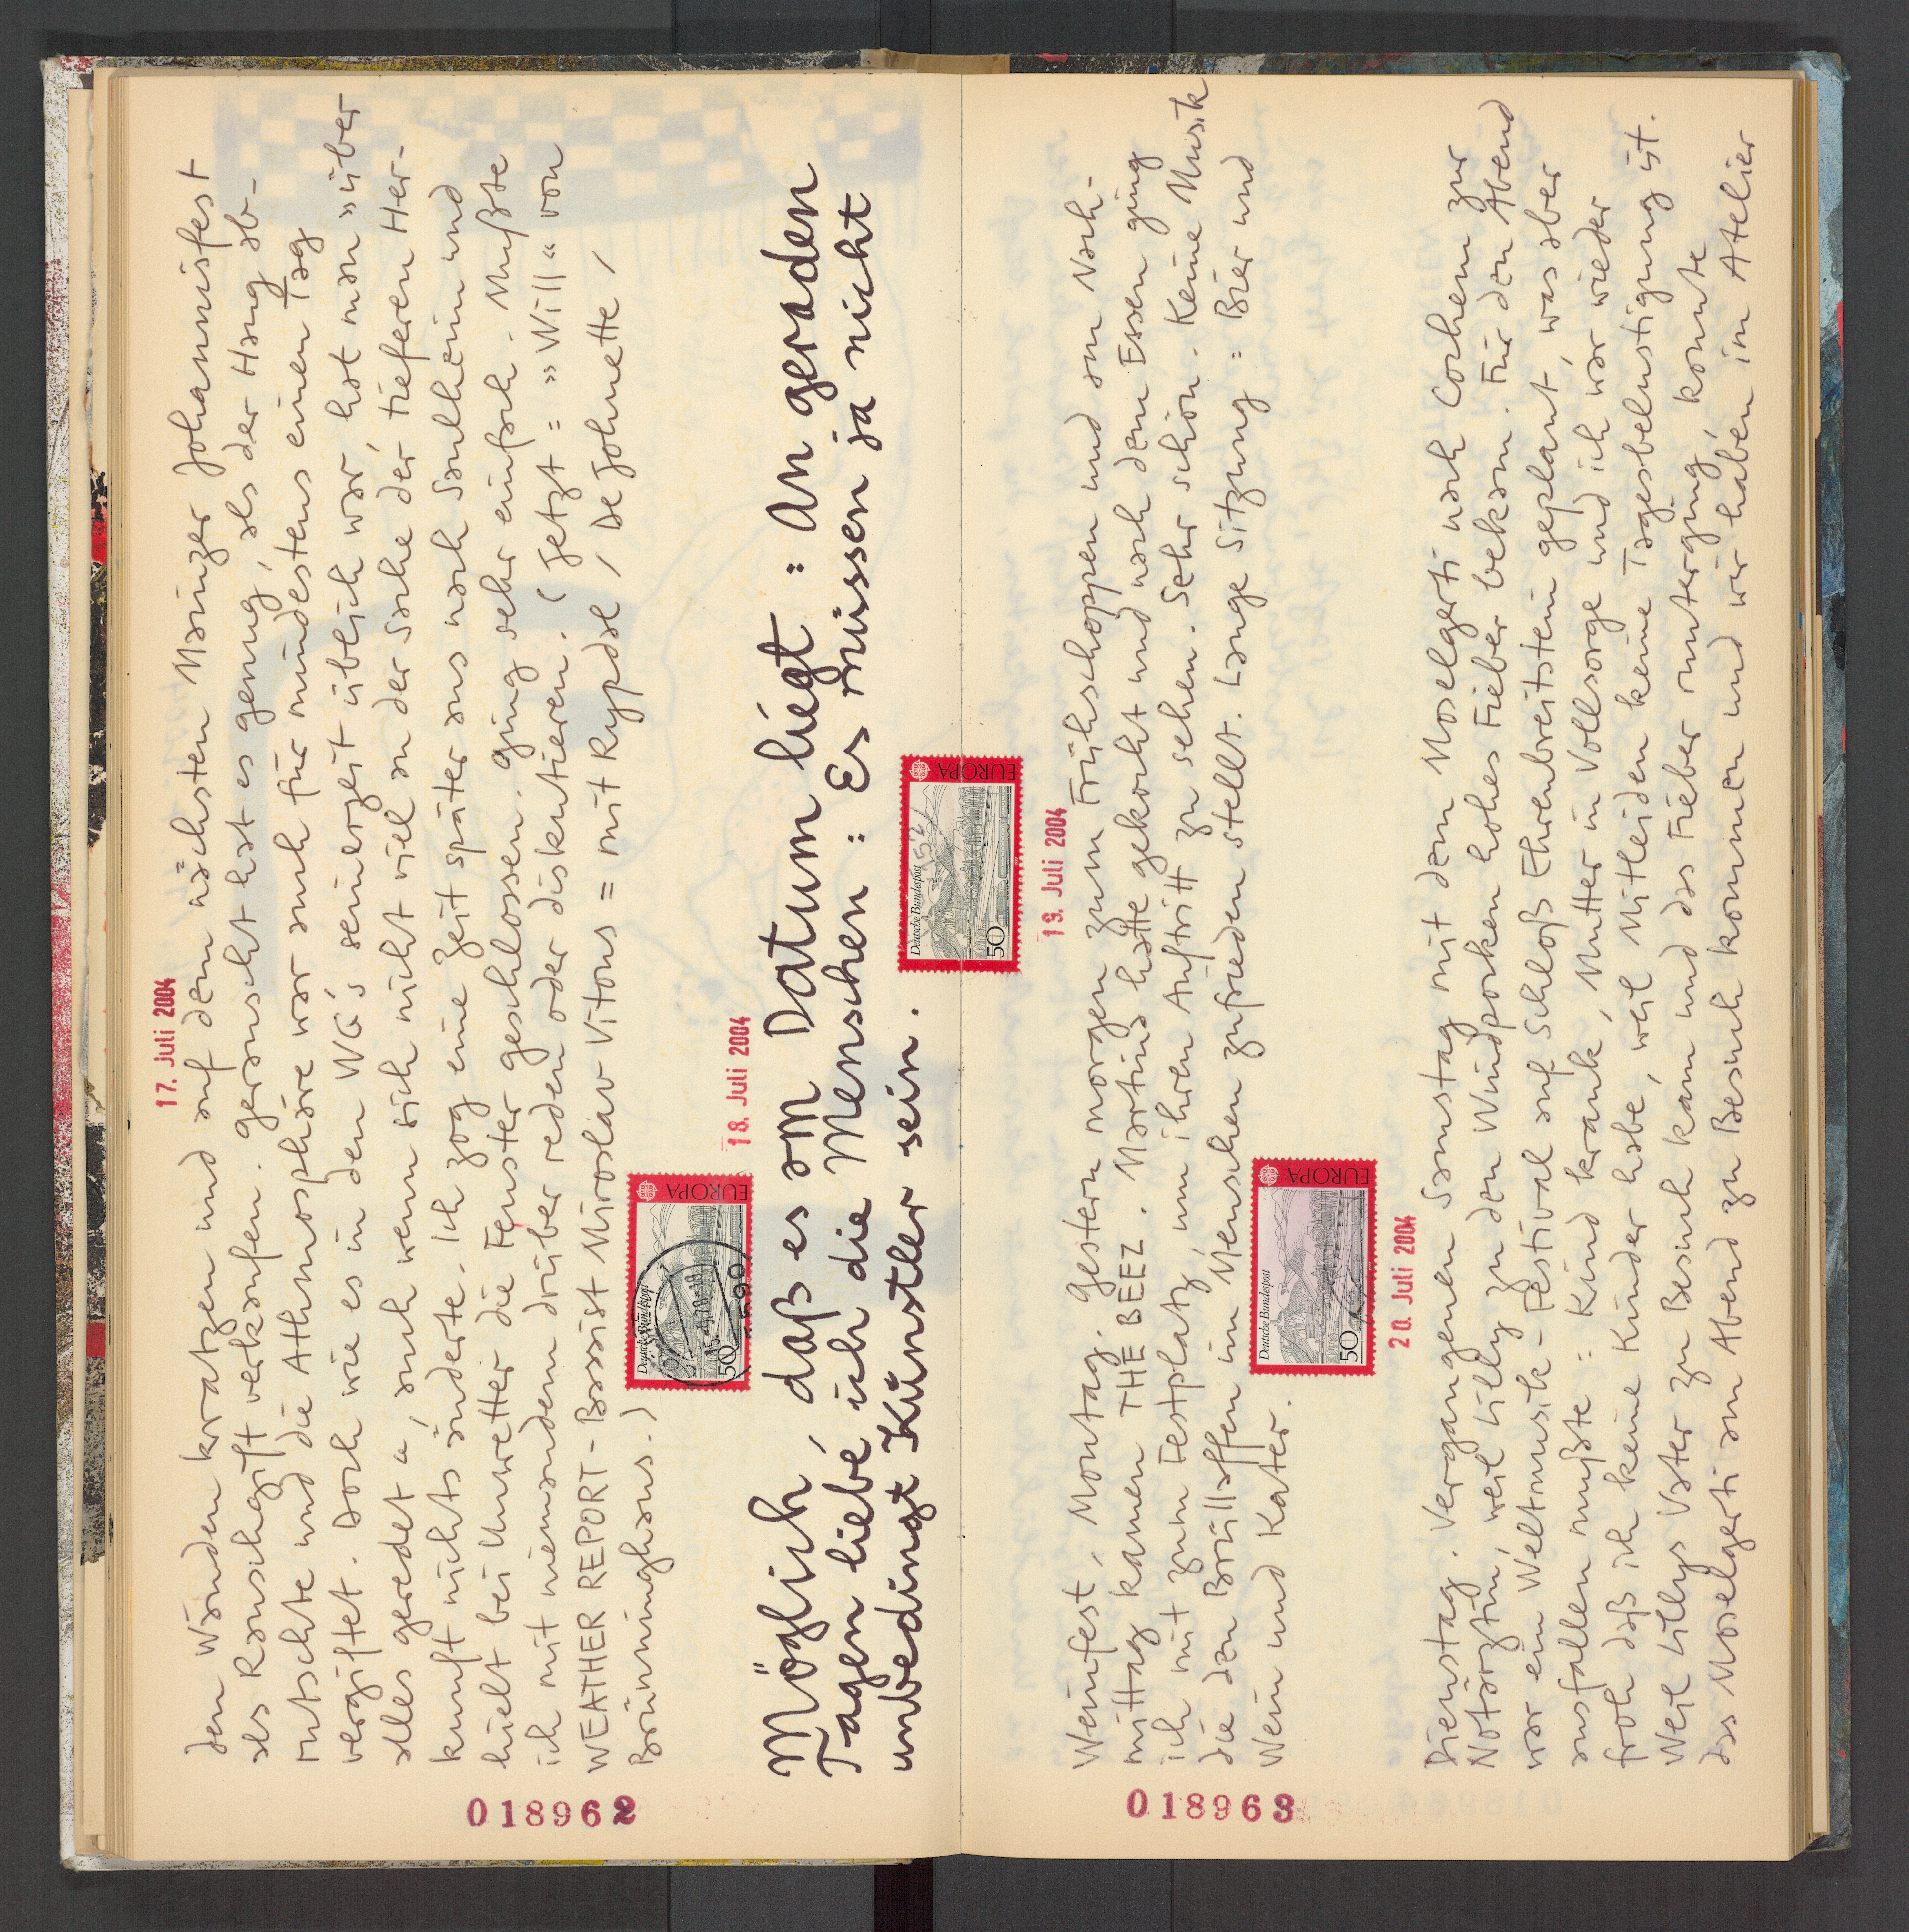 17. Juli 2004
den Wänden kratzen und auf dem nächsten Mainzer Johannisfest
als Rauschgift verkaufen. Geraucht hat es genug, als der Hang ab-
rutschte und die Athmosphäre war auch für mindestens einen Tag
vergiftet. Doch wie es in den WG's seinerzeit üblich war, hat man »über
alles geredet«, auch wenn sich nicht viel an der Sache der tieferen Her-
kunft nichts änderte. Ich zog eine Zeit später aus nach Saulheim und
hielt bei Unwetter die Fenster geschlossen. Ging sehr einfach. Mußte
ich mit niemandem drüber reden oder diskutieren. (Jetzt = »Will« von
WEATHER REPORT-Bassist Miroslav Vitous = mit Rypdal / DeJohnette /
Brüninghaus.)
Deutsche Bundespost
50
EUROPA
18. Juli 2004
Möglich, daß es am Datum liegt : An geraden
Tagen liebe ich die Menschen : Es müssen ja nicht
unbedingt Künstler sein.
Deutsche Bundespost
50
EUROPA
018962
19. Juli 2004
Weinfest, Montag. Gestern morgen zum Frühschoppen und am Nach-
mittag kamen THE BEEZ. Martina hatte gekocht und nach dem Essen ging
ich mit zum Festplatz, um ihren Auftritt zu sehen. Sehr schön. Keine Musik
die den Brüllaffen im Menschen zufrieden stellt. Lange Sitzung = Bier und
Wein und Kater.
Deutsche Bundespost
50
EUROPA
20. Juli 2004
Dienstag. Vergangenen Samstag mit dem Moselgerti nach Cochem zur
Notärztin, weil Lilly zu den Windpocken hohes Fieber bekam. Für den Abend
war ein Weltmusik-Festival auf Schloß Ehrenbreitstein geplant, was aber
ausfallen mußte = Kind krank, Mutter in Vollsorge und ich war wieder
froh daß ich keine Kinder habe, weil Mitleiden keine Tagesbelustigung ist.
Weil Lillys Vater zu Besuch kam und das Fieber runterging, konnte
das Moselgerti am Abend zu Besuch kommen und wir haben im Atelier
018963